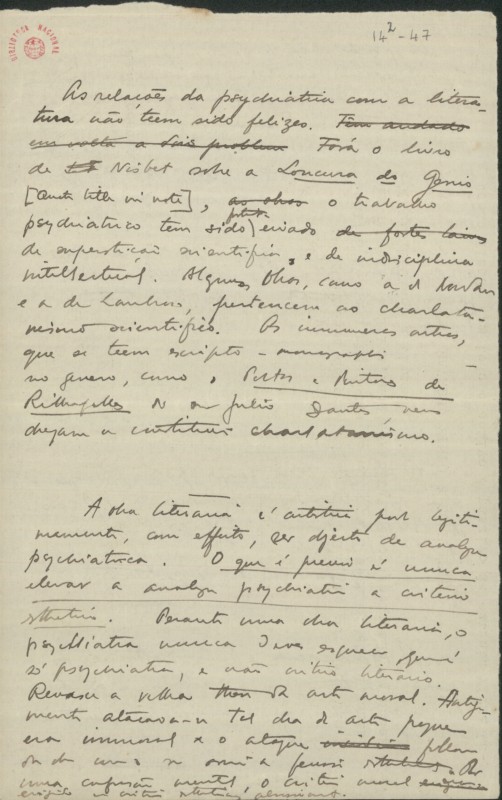 BIBLIOTECA NACIONAL
14² - 47
As relações da psychiatria com a litera-
tura não teem sido felizes. Tem andado
em volta a Seis problem Fóra o livro
de Nisbet sobre a Loucura do Genio
[ title em note], o trabalho
psychiatrico tem sido eivado de fortes laivos
de superstição scientifica, e de indisciplina
intellectual. Algumas obras, como a d Nordau
e a de Lombroso, pertencem ao charlata-
nismo scientifico. As innumeras outras,
que se teem escripto - monographi
no genero, como o Poetas e Pintores de
Rilhafolles do sr Julio Dantas, nem
chegam a constituir charlatanismo.
A obra literaria e artistica pode legiti-
mamente, com effeito, ser objecto de analyse
psychiatrica. O que é preciso é nunca
elevar a analyse psychiatrica a criterio
esthetico. Perante uma obra literaria, o
psychiatra nunca deve esquecer que é
só psychiatra, e não critico literario.
Renasce a velha da arte moral. Antiga-
mente atacava-se tal obra de arte porque
era immoral e o ataque
uma confusão mental, o criterio moral
erigido em criterio esthetico